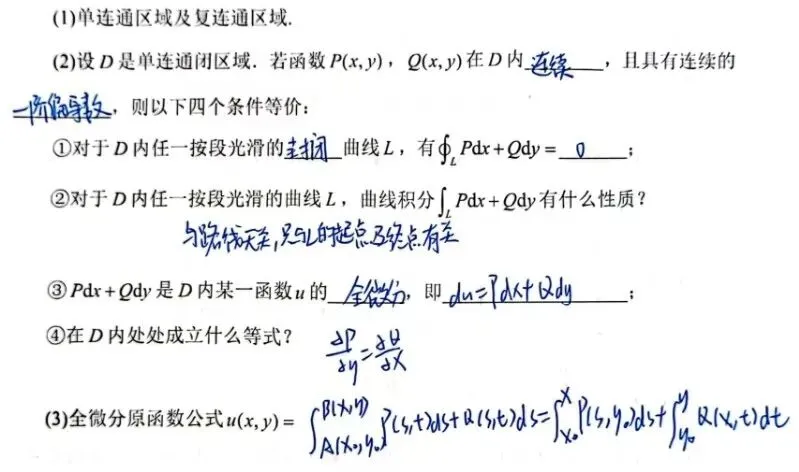 (1)单连通区域及复连通区域.
(2)设 D 是单连通闭区域. 若函数 P(x, y), Q(x, y) 在 D 内 连续, 且具有连续的
一阶偏导数, 则以下四个条件等价:
①对于 D 内任一按段光滑的 封闭 曲线 L, 有∮_L Pdx + Qdy = 0;
②对于 D 内任一按段光滑的曲线 L, 曲线积分∫_L Pdx + Qdy 有什么性质?
与路线无关,只与L的起点及终点有关
③ Pdx + Qdy 是 D 内某一函数 u 的 全微分, 即 du=Pdx+Qdy;
④在 D 内处处成立什么等式? ∂P/∂y=∂Q/∂x
(3)全微分原函数公式 u(x, y) = ∫_{A(x₀,y₀)}^{B(x,y)} P(s,t)ds+Q(s,t)ds=∫_{x₀}^{x} P(s,y₀)ds+∫_{y₀}^{y} Q(x,t)dt